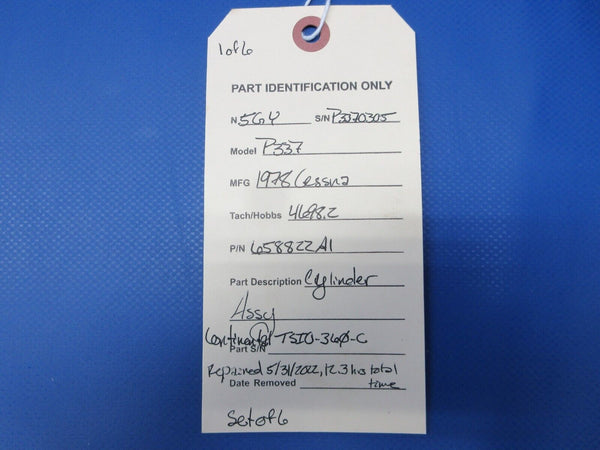 1 of 6
PART IDENTIFICATION ONLY
N 5GY S/N P3370305
Model P337
MFG 1978 Cessna
Tach/Hobbs 4698.2
P/N 658822A1
Part Description Cylinder
Assy
Continental TSIO-360-C
Part S/N
Repaired 5/31/2022, 12.3 hrs total
Date Removed time
Set of 6